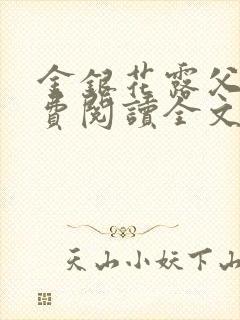 金銀花露父
費閱讀全文
天山小妖下山